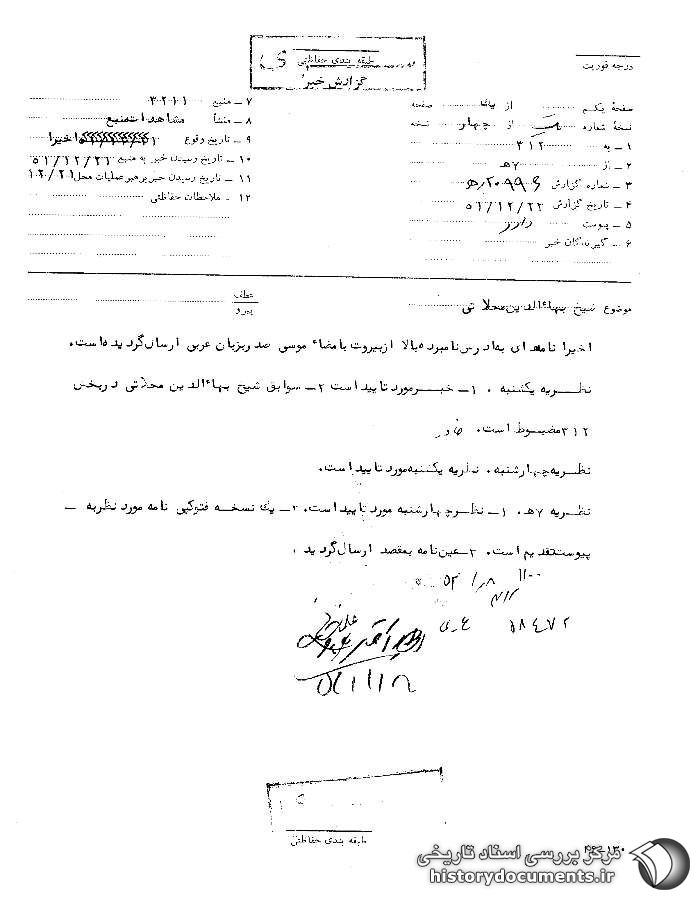 درجه فوریت
طبقه بندی حفاظتی
گزارش خبر
صفحهٔ یکم از یک صفحه
نسخهٔ شماره یک از چهار نسخه
۱ ـ به ۳۱۲
۲ ـ از ۷ هـ
۳ ـ شماره گزارش
۴ ـ تاریخ گزارش ۵۱/۱۲/۲۲
۵ ـ پیوست دارد
۶ ـ گیرندگان خبر
۷ ـ منبع ۳۲۱۱
۸ ـ منشأ مشاهدات منبع
۹ ـ تاریخ وقوع اخیرا
۱۰ ـ تاریخ رسیدن خبر به منبع ۵۱/۱۲/۲۱
۱۱ ـ تاریخ رسیدن خبر برهبر عملیات محل
۱۲ ـ ملاحظات حفاظتی
موضوع شیخ بهاءالدین محلاتی
عطف
پیرو
اخیرا نامه ای به آدرس نامبرده بالا از بیروت بامضاء موسی صدر بزبان عربی ارسال گردیده است.
نظریه یکشنبه . ۱ـ خبر مورد تایید است ۲ـ سوابق شیخ بهاءالدین محلاتی در بخش
۳۱۲ مضبوط است.
نظریه چهارشنبه . نظریه یکشنبه مورد تایید است.
نظریه ۷ هـ . ۱ـ نظر چهارشنبه مورد تایید است. ۲ـ یک نسخه فتوکپی نامه مورد نظر به ـ
پیوست تقدیم است. ۳ـ عین نامه بمقصد ارسال گردید .
طبقه بندی حفاظتی
مرکز بررسی اسناد تاریخی
historydocuments.ir